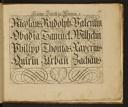 Nicolaus Rudolph Valentin
Obadia Samuel Wilhelm
Philipp Thomas Xaverius
Quirin Urban Zachäus